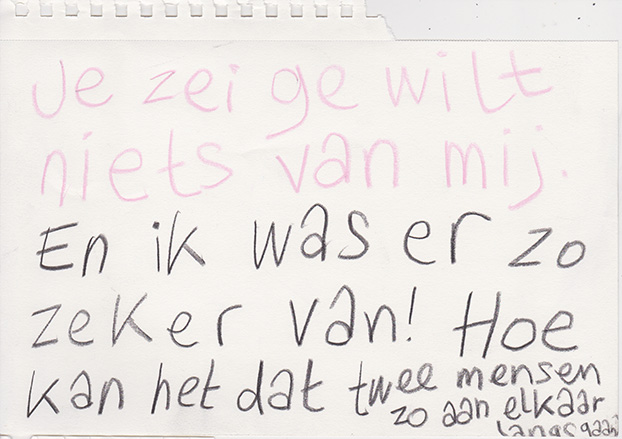 Je zei ge wilt
niets van mij.
En ik was er zo
zeker van! Hoe
kan het dat twee mensen
zo aan elkaar
langsgaan?